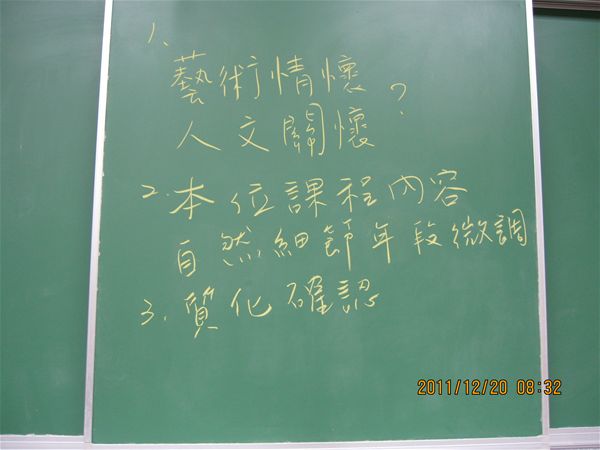 1、
藝術情懷
人文關懷？
2. 本位課程內容
自然細節年段微調
3. 質化確認
2011/12/20 08:32